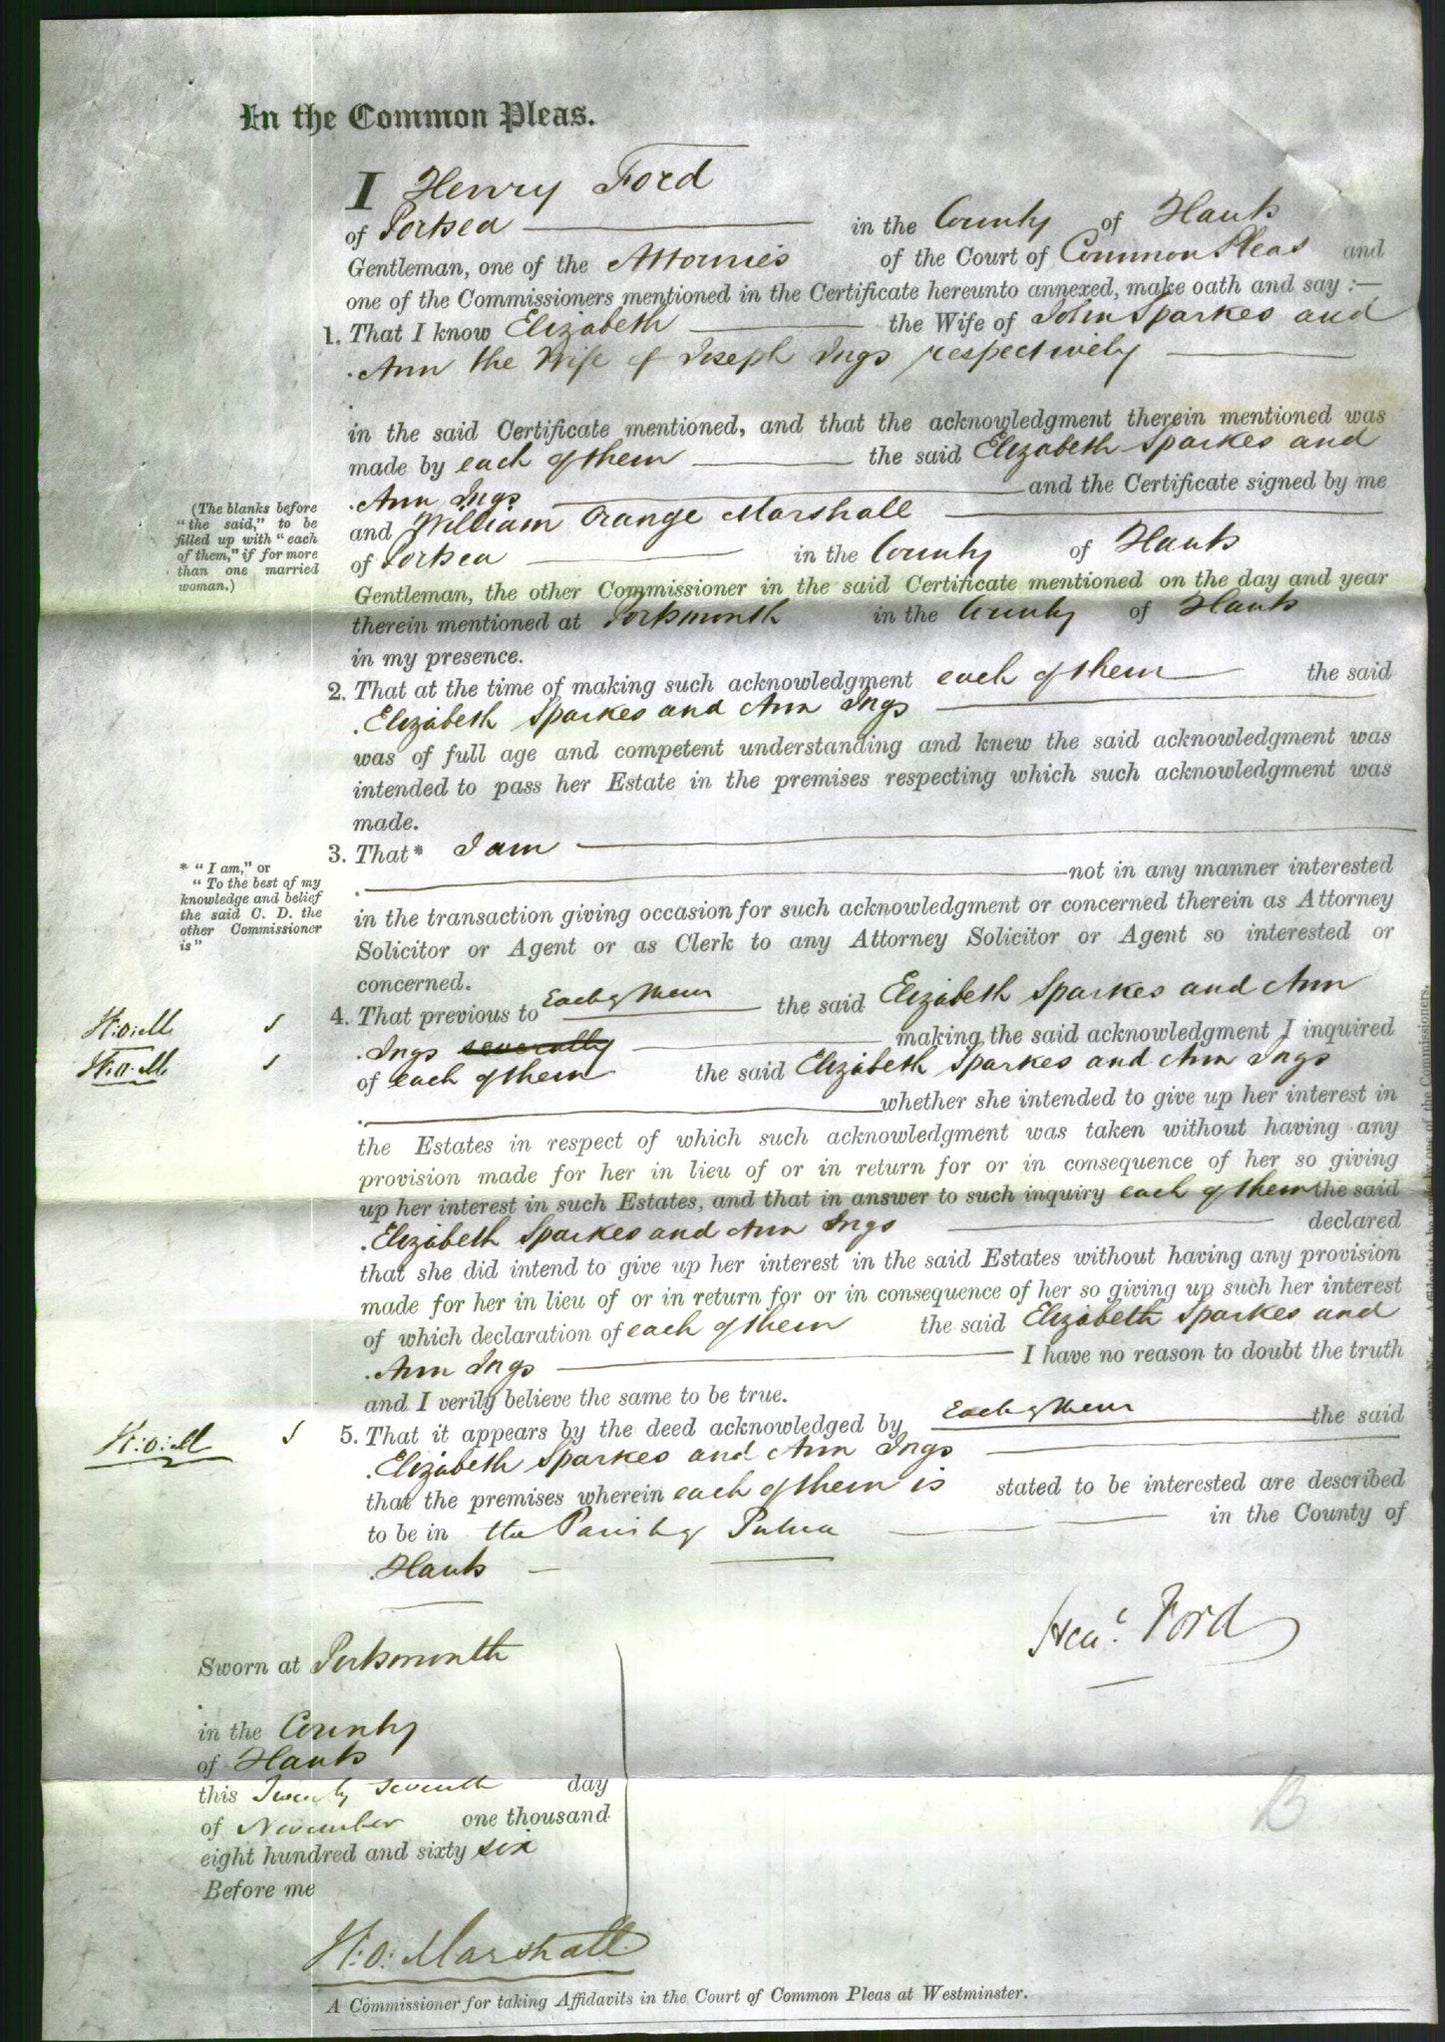 In the Common Pleas.
I Henry Ford
of Portsea in the County of Hants
Gentleman, one of the Attornies of the Court of Common Pleas and
one of the Commissioners mentioned in the Certificate hereunto annexed, make oath and say :—
1. That I know Elizabeth the Wife of John Sparkes and
Ann the Wife of Joseph Ings respectively
in the said Certificate mentioned, and that the acknowledgment therein mentioned was
made by each of them the said Elizabeth Sparkes and
Ann Ings and the Certificate signed by me
(The blanks before
"the said," to be
filled up with "each
of them," if for more
than one married
woman.)
and William Orange Marshall
of Portsea in the County of Hants
Gentleman, the other Commissioner in the said Certificate mentioned on the day and year
therein mentioned at Portsmouth in the County of Hants
in my presence.
2. That at the time of making such acknowledgment each of them the said
Elizabeth Sparkes and Ann Ings
was of full age and competent understanding and knew the said acknowledgment was
intended to pass her Estate in the premises respecting which such acknowledgment was
made.
3. That* I am
* "I am," or
"To the best of my
knowledge and belief
the said C. D. the
other Commissioner
is"
not in any manner interested
in the transaction giving occasion for such acknowledgment or concerned therein as Attorney
Solicitor or Agent or as Clerk to any Attorney Solicitor or Agent so interested or
concerned.
4. That previous to Each of them the said Elizabeth Sparkes and Ann
W:O:M
Ings severally making the said acknowledgment I inquired
W:O:M
of each of them the said Elizabeth Sparkes and Ann Ings
whether she intended to give up her interest in
the Estates in respect of which such acknowledgment was taken without having any
provision made for her in lieu of or in return for or in consequence of her so giving
up her interest in such Estates, and that in answer to such inquiry each of them the said
Elizabeth Sparkes and Ann Ings declared
that she did intend to give up her interest in the said Estates without having any provision
made for her in lieu of or in return for or in consequence of her so giving up such her interest
of which declaration of each of them the said Elizabeth Sparkes and
Ann Ings I have no reason to doubt the truth
and I verily believe the same to be true.
W:O:M
5. That it appears by the deed acknowledged by Each of them the said
Elizabeth Sparkes and Ann Ings
that the premises wherein each of them is stated to be interested are described
to be in the Parish of in the County of
Hants
Heny. Ford
Sworn at Portsmouth
in the County
of Hants
this Twenty seventh day
of November one thousand
eight hundred and sixty six
Before me
W:O: Marshall
A Commissioner for taking Affidavits in the Court of Common Pleas at Westminster.
B
Affidavit to be made by one of the Commissioners.